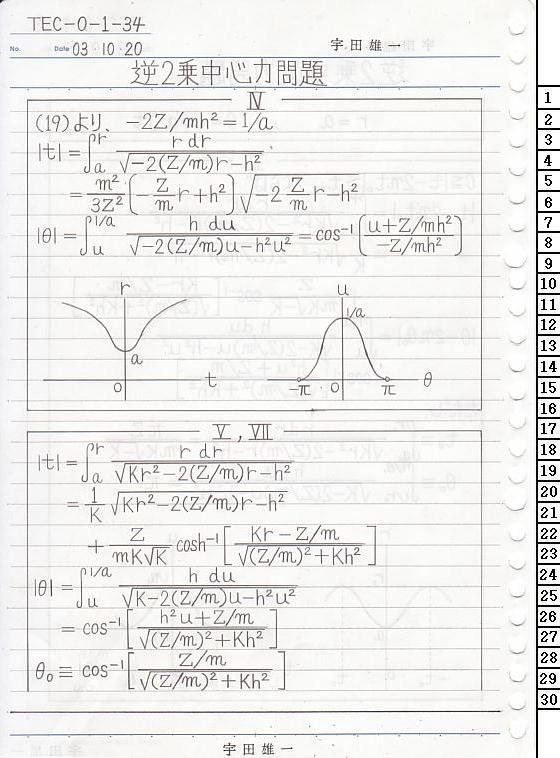 TEC-0-1-34
No. Date 03・10・20 宇田雄一
逆2乗中心力問題
Ⅳ
(19)より、 -2Z/mh²=1/a
|t|=∫ₐʳ r dr / √(-2(Z/m)r-h²)
= m²/3Z² [-Z/m r+h²] √(-2 Z/m r-h²)
|θ|=∫ᵤ^(1/a) h du / √(-2(Z/m)u-h²u²) = cos⁻¹[(u+Z/mh²)/(-Z/mh²)]
r u
1/a
a
0 t -π 0 π θ
Ⅴ, Ⅶ
|t|=∫ₐʳ r dr / √(Kr²-2(Z/m)r-h²)
= 1/K √(Kr²-2(Z/m)r-h²)
+ Z/(mK√K) cosh⁻¹[(Kr-Z/m)/√((Z/m)²+Kh²)]
|θ|=∫ᵤ^(1/a) h du / √(K-2(Z/m)u-h²u²)
= cos⁻¹[(h²u+Z/m)/√((Z/m)²+Kh²)]
θ₀ ≡ cos⁻¹[(Z/m)/√((Z/m)²+Kh²)]
宇田雄一
1
2
3
4
5
6
7
8
9
10
11
12
13
14
15
16
17
18
19
20
21
22
23
24
25
26
27
28
29
30